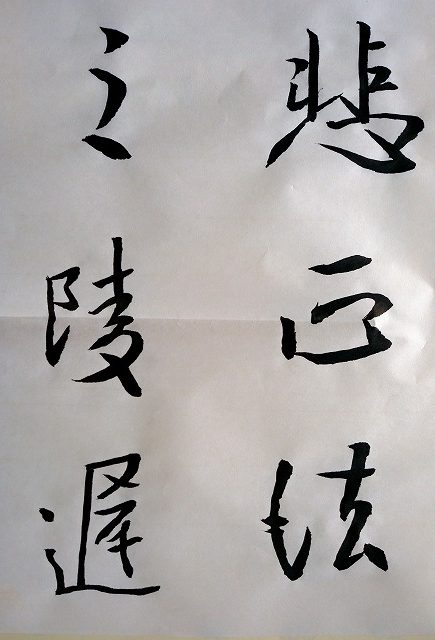 悲正法
之陵遲